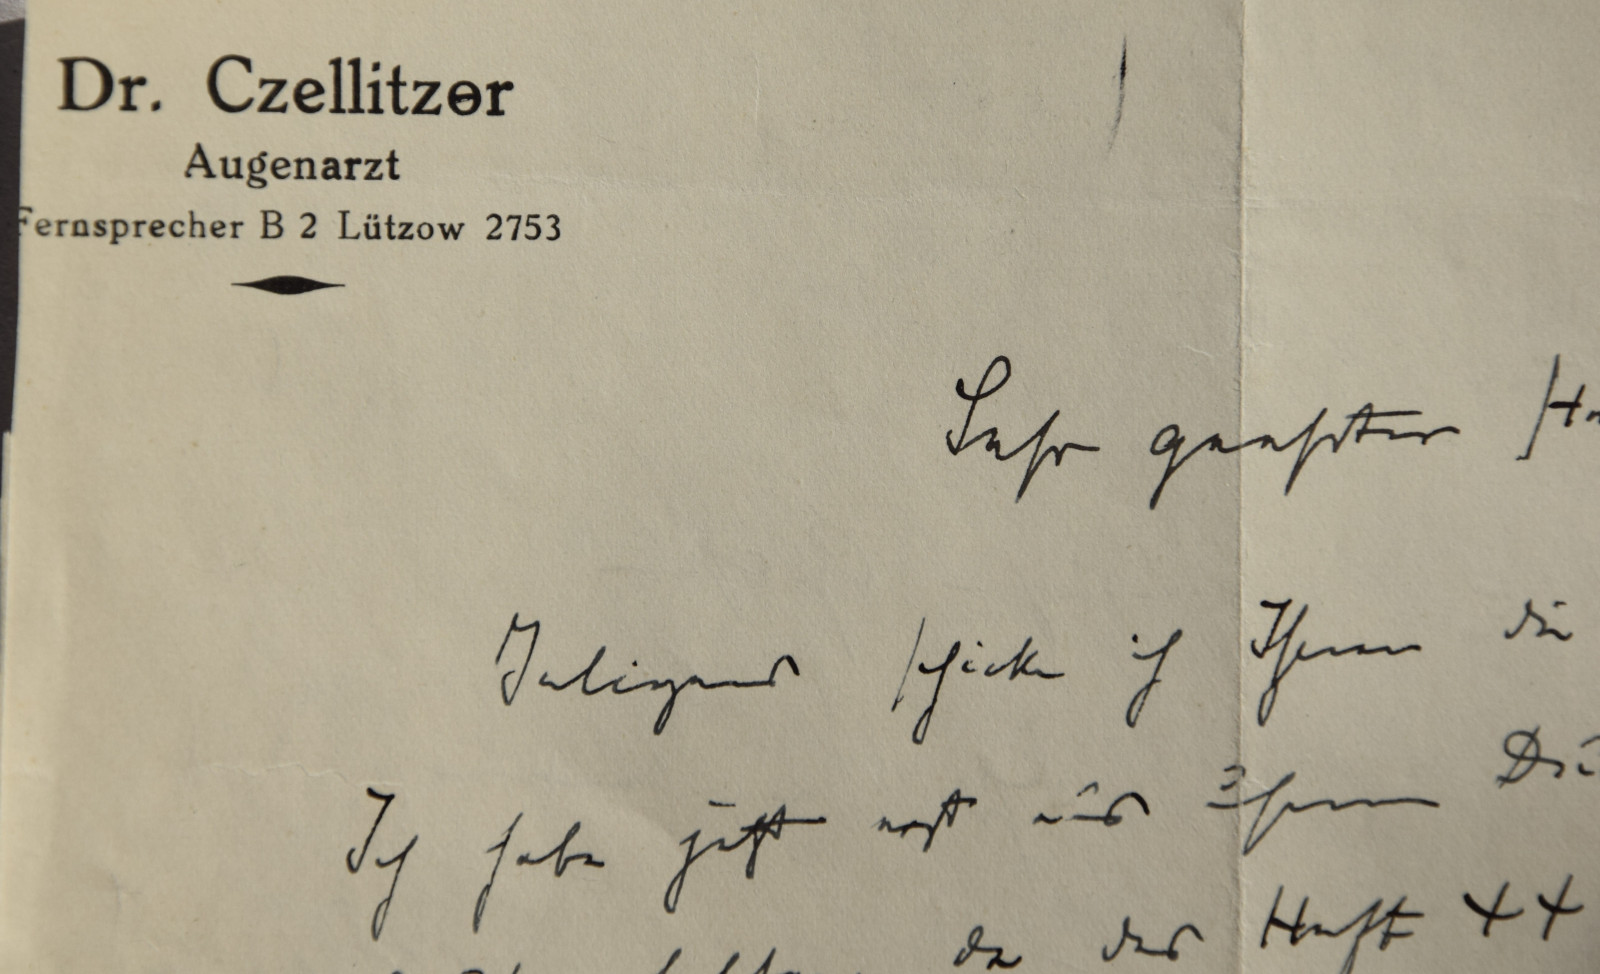 Dr. Czellitzer
Augenarzt
Fernsprecher B 2 Lützow 2753
Sehr geehrter
Inliegend schicke ich Ihnen die
Ich habe jetzt erst aus Ihrem
da das Heft 44